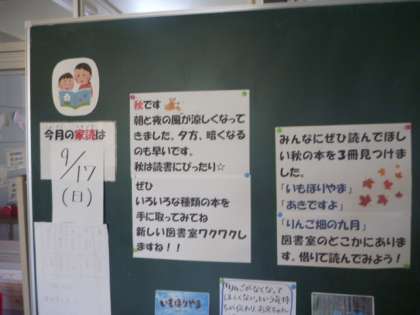 今月の家読は
9/17
(日)
秋です
朝と夜の風が涼しくなって
きました。夕方、暗くなる
のも早いです。
秋は読書にぴったり☆
ぜひ
いろいろな種類の本を
手に取ってみてね
新しい図書室ワクワクし
ますね！！
みんなにぜひ読んでほし
い秋の本を３冊見つけまし
ました。
「いもほりやま」
「あきですよ」
「りんご畑の九月」
図書室のどこかにありま
す。借りて読んでみよう！
いもほりやま